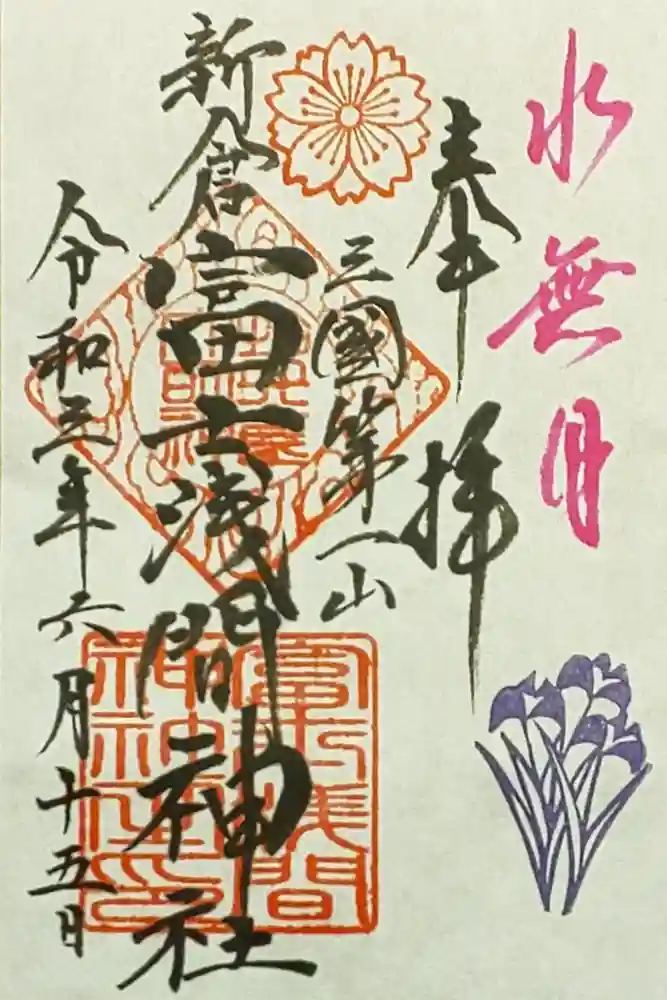 水無月
奉拝
三國第一山
新倉富士浅間神社
令和三年六月十五日